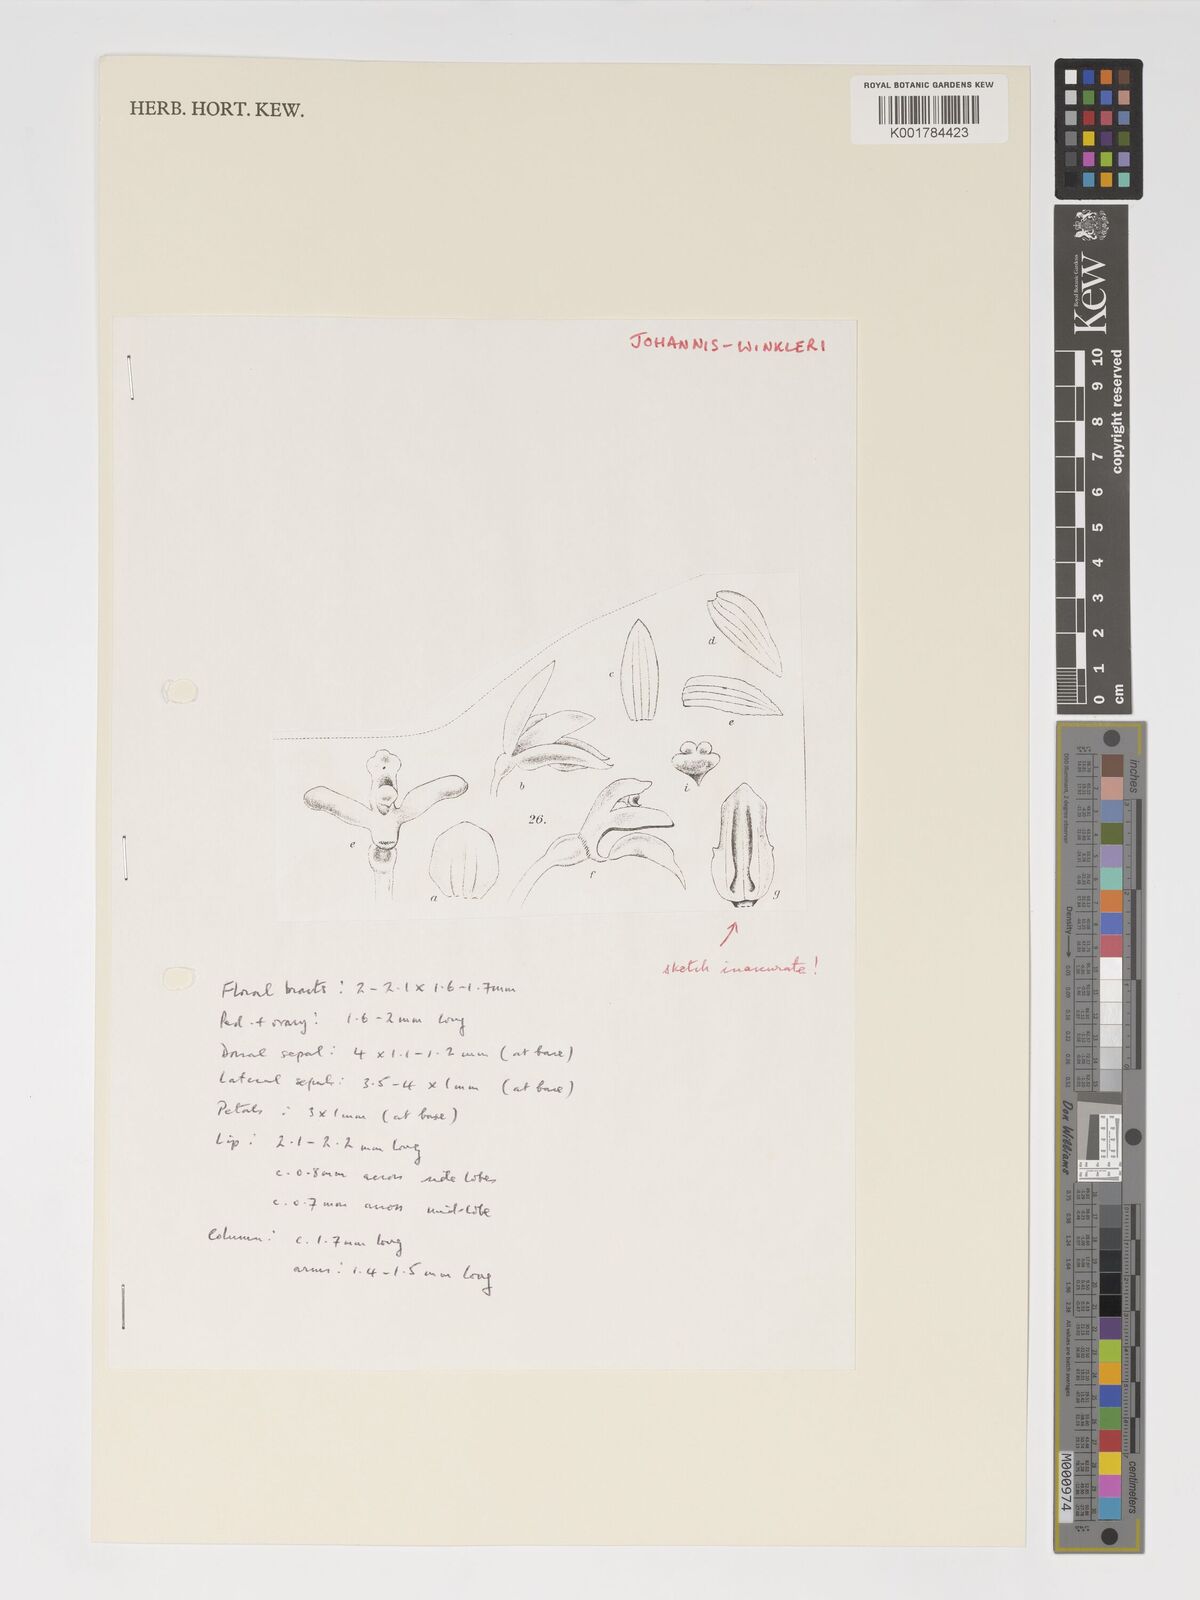 HERB. HORT. KEW.
ROYAL BOTANIC GARDENS KEW
K001784423
JOHANNIS-WINKLERI
d
c
e
b
i
26.
e
f
a
g
sketch inaccurate!
Floral bracts : 2-2.1 x 1.6-1.7mm
Ped. + ovary : 1.6-2mm long
Dorsal sepal : 4 x 1.1-1.2 mm (at base)
Lateral sepals : 3.5-4 x 1mm (at base)
Petals : 3x1mm (at base)
Lip : 2.1-2.2 mm long
c. 0.8mm across side lobes
c. 0.7mm across mid-lobe
Column : c. 1.7mm long
arms : 1.4-1.5mm long
Royal Botanic Gardens
Kew
0 1 2 3 4 5 6 7 8 9 10
cm
copyright reserved
inches
Density
Don Williams
All values are batch averages
M000974
centimeters